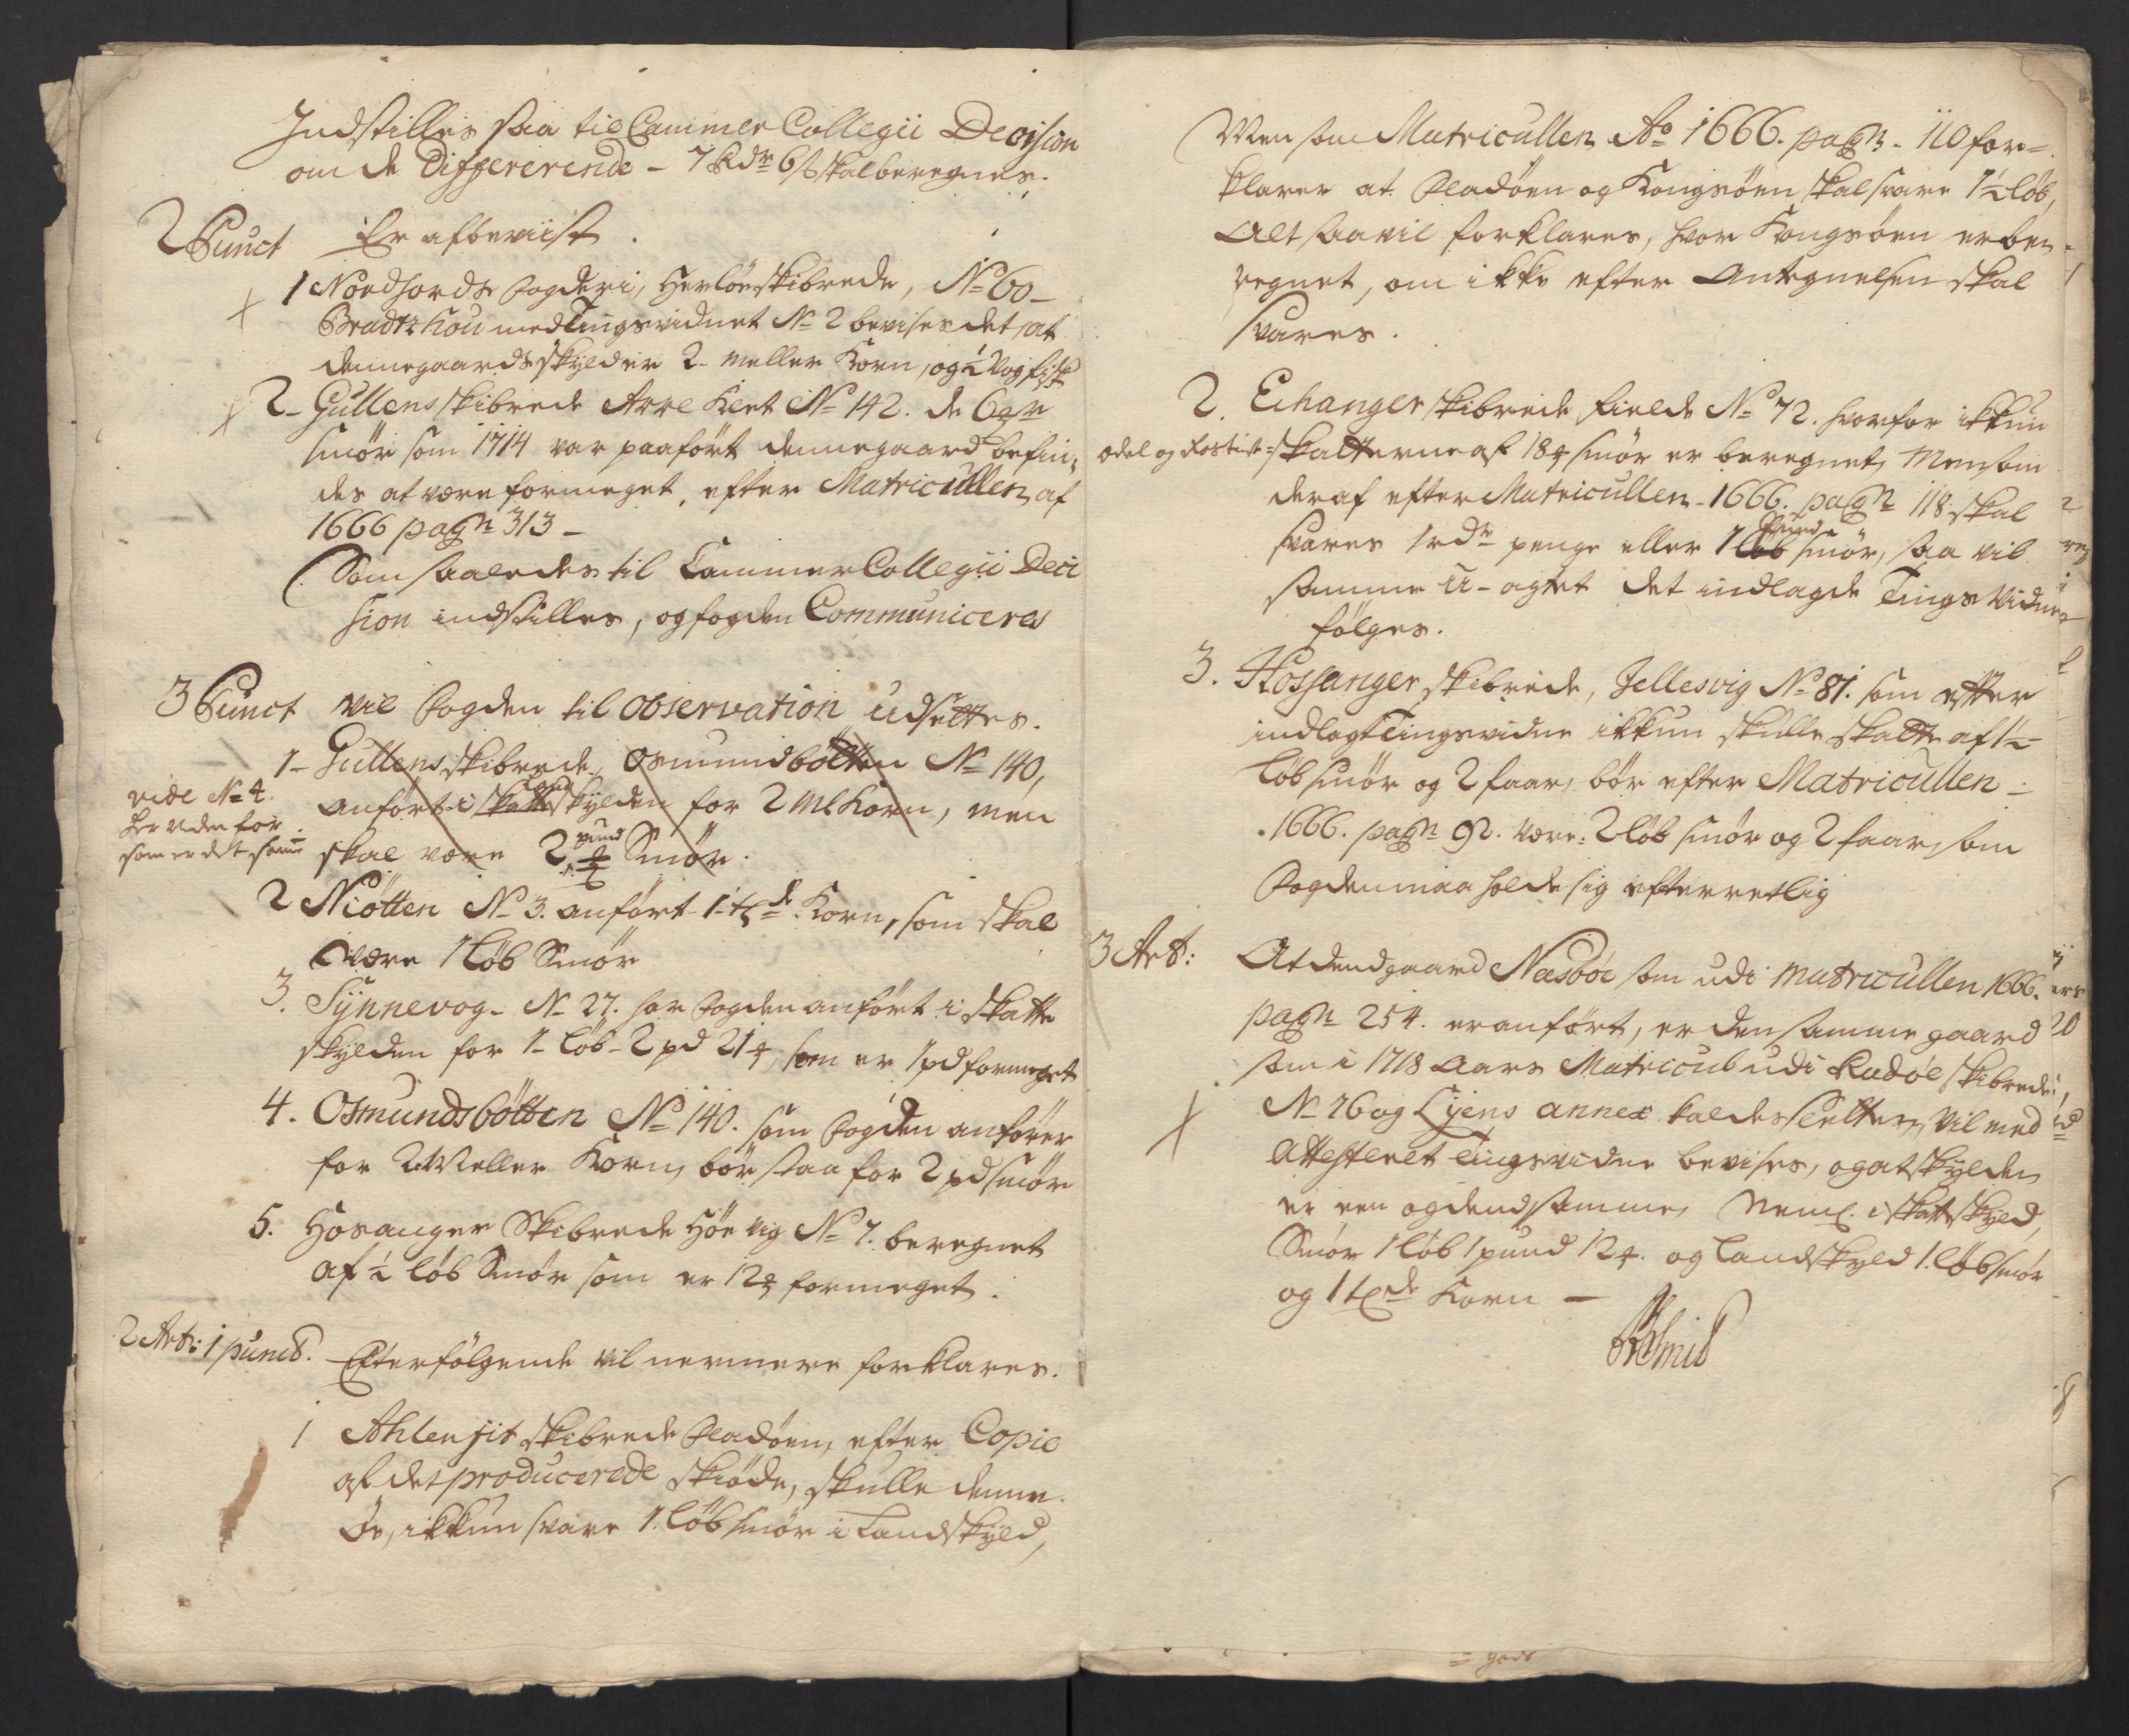 Indstilles saa til Cammer Collegii Decision
om de Differerende - 7 Rdr 6 ß skal beregnes.
2 Punct Er afbeviist.
1 Nordhords Fogderi, Herlöe skibrede, No 60 -
med Tingsvidnet No 2 bevises det, at
denne gaards skylder 2 meller Korn, og ½ Vog fisk
2 - Gullens skibrede No 142. de 6
smör som 1714 var paafört denne gaard befin-
des at være formeget, efter Matricullen af
1666 pagn 313 -
Som saaledes til Cammer Collegii Deci
sion indstilles, og fogden Communiceres
3 Punct vil Fogden til observation udsettes.
1 - Gullens skibrede, Osmundbötten No 140,
vide No 4.
her neden for
som er det same
anfört i skatte Land skylden for 2 Ml Korn, men
skal være 2 pund Smör.
2 Niötten No 3. anfört 1 tde Korn, som skal
være 1 Löb Smör
3. Synnevog - No 27. har Fogden anfört i Skatte
skylden for 1 - Löb - 2 pd 21 ℔, som er 1 pd formeget
4. Osmundsbötten No 140. som Fogden anförer
for 2 Meller Korn, bör staa for 2 pd smör
5. Hosanger Skibrede Höevig No 7. beregnet
af ½ löb Smör som er 12 ℔ formeget.
2 Art: 1 punct. Efterfölgende vil nermere forklares.
1 Ahlenfit skibrede Fladöen, efter Copie
af det producerede skiöde, skulle denne
Öe, ikkun svare 1. Löb smör i Landskyld,
Men som Matricullen Ao 1666. pagn - 110 for=
klarer at Fladöen og Kongsöen skal svare 1½ Löb,
Alt saa vil forklares, hvor Kongsöen er be-
regnet, om ikke efter Antegnelsen skal
svares.
2. Echanger skibrede, Fielde No 72. hvorfor ikkun
odel og Rostienst= skatterne af 18 ℔ smör er beregnet, Men som
deraf efter Matricullen - 1666. pagn 118 skal
svares 1 rdr penge eller 1 Löb Pund smör, saa vil
samme u-agtet det indlagde Tings Vidne
fölges.
3. Hossanger skibrede, Jellesvig No 81. som efter
indlagt Tingsvidne ikkun skulle skatte af 1½
Löb smör og 2 faar, bör efter Matricullen -
1666. pagn 92. være: 2 löb smör og 2 faar, som
Fogden maa holde sig efterretlig
3 Art: At dend gaard Næsböe som udi Matricullen 1666.
pagn 254. er anfört, er den samme gaard
som i 1718 Aars Matricul udi Radöe skibrede,
No 26 og Lyens annex kaldes Sletten, vil med
Attesteret Tingsvidne bevises, og at skylden
er een og dend samme, Neml. i skatteskyld,
Smör 1 Löb 1 pund 12 ℔. og Landskyld 1. löb smör
og 1 tde Korn -